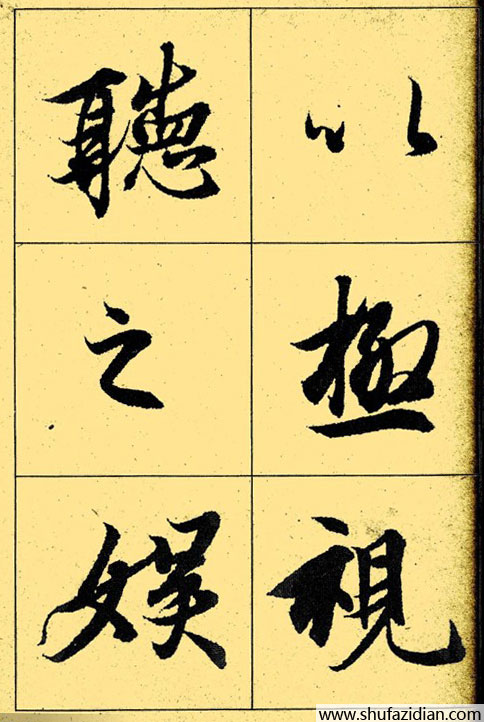 以極視
聽之娱
www.shufazidian.com